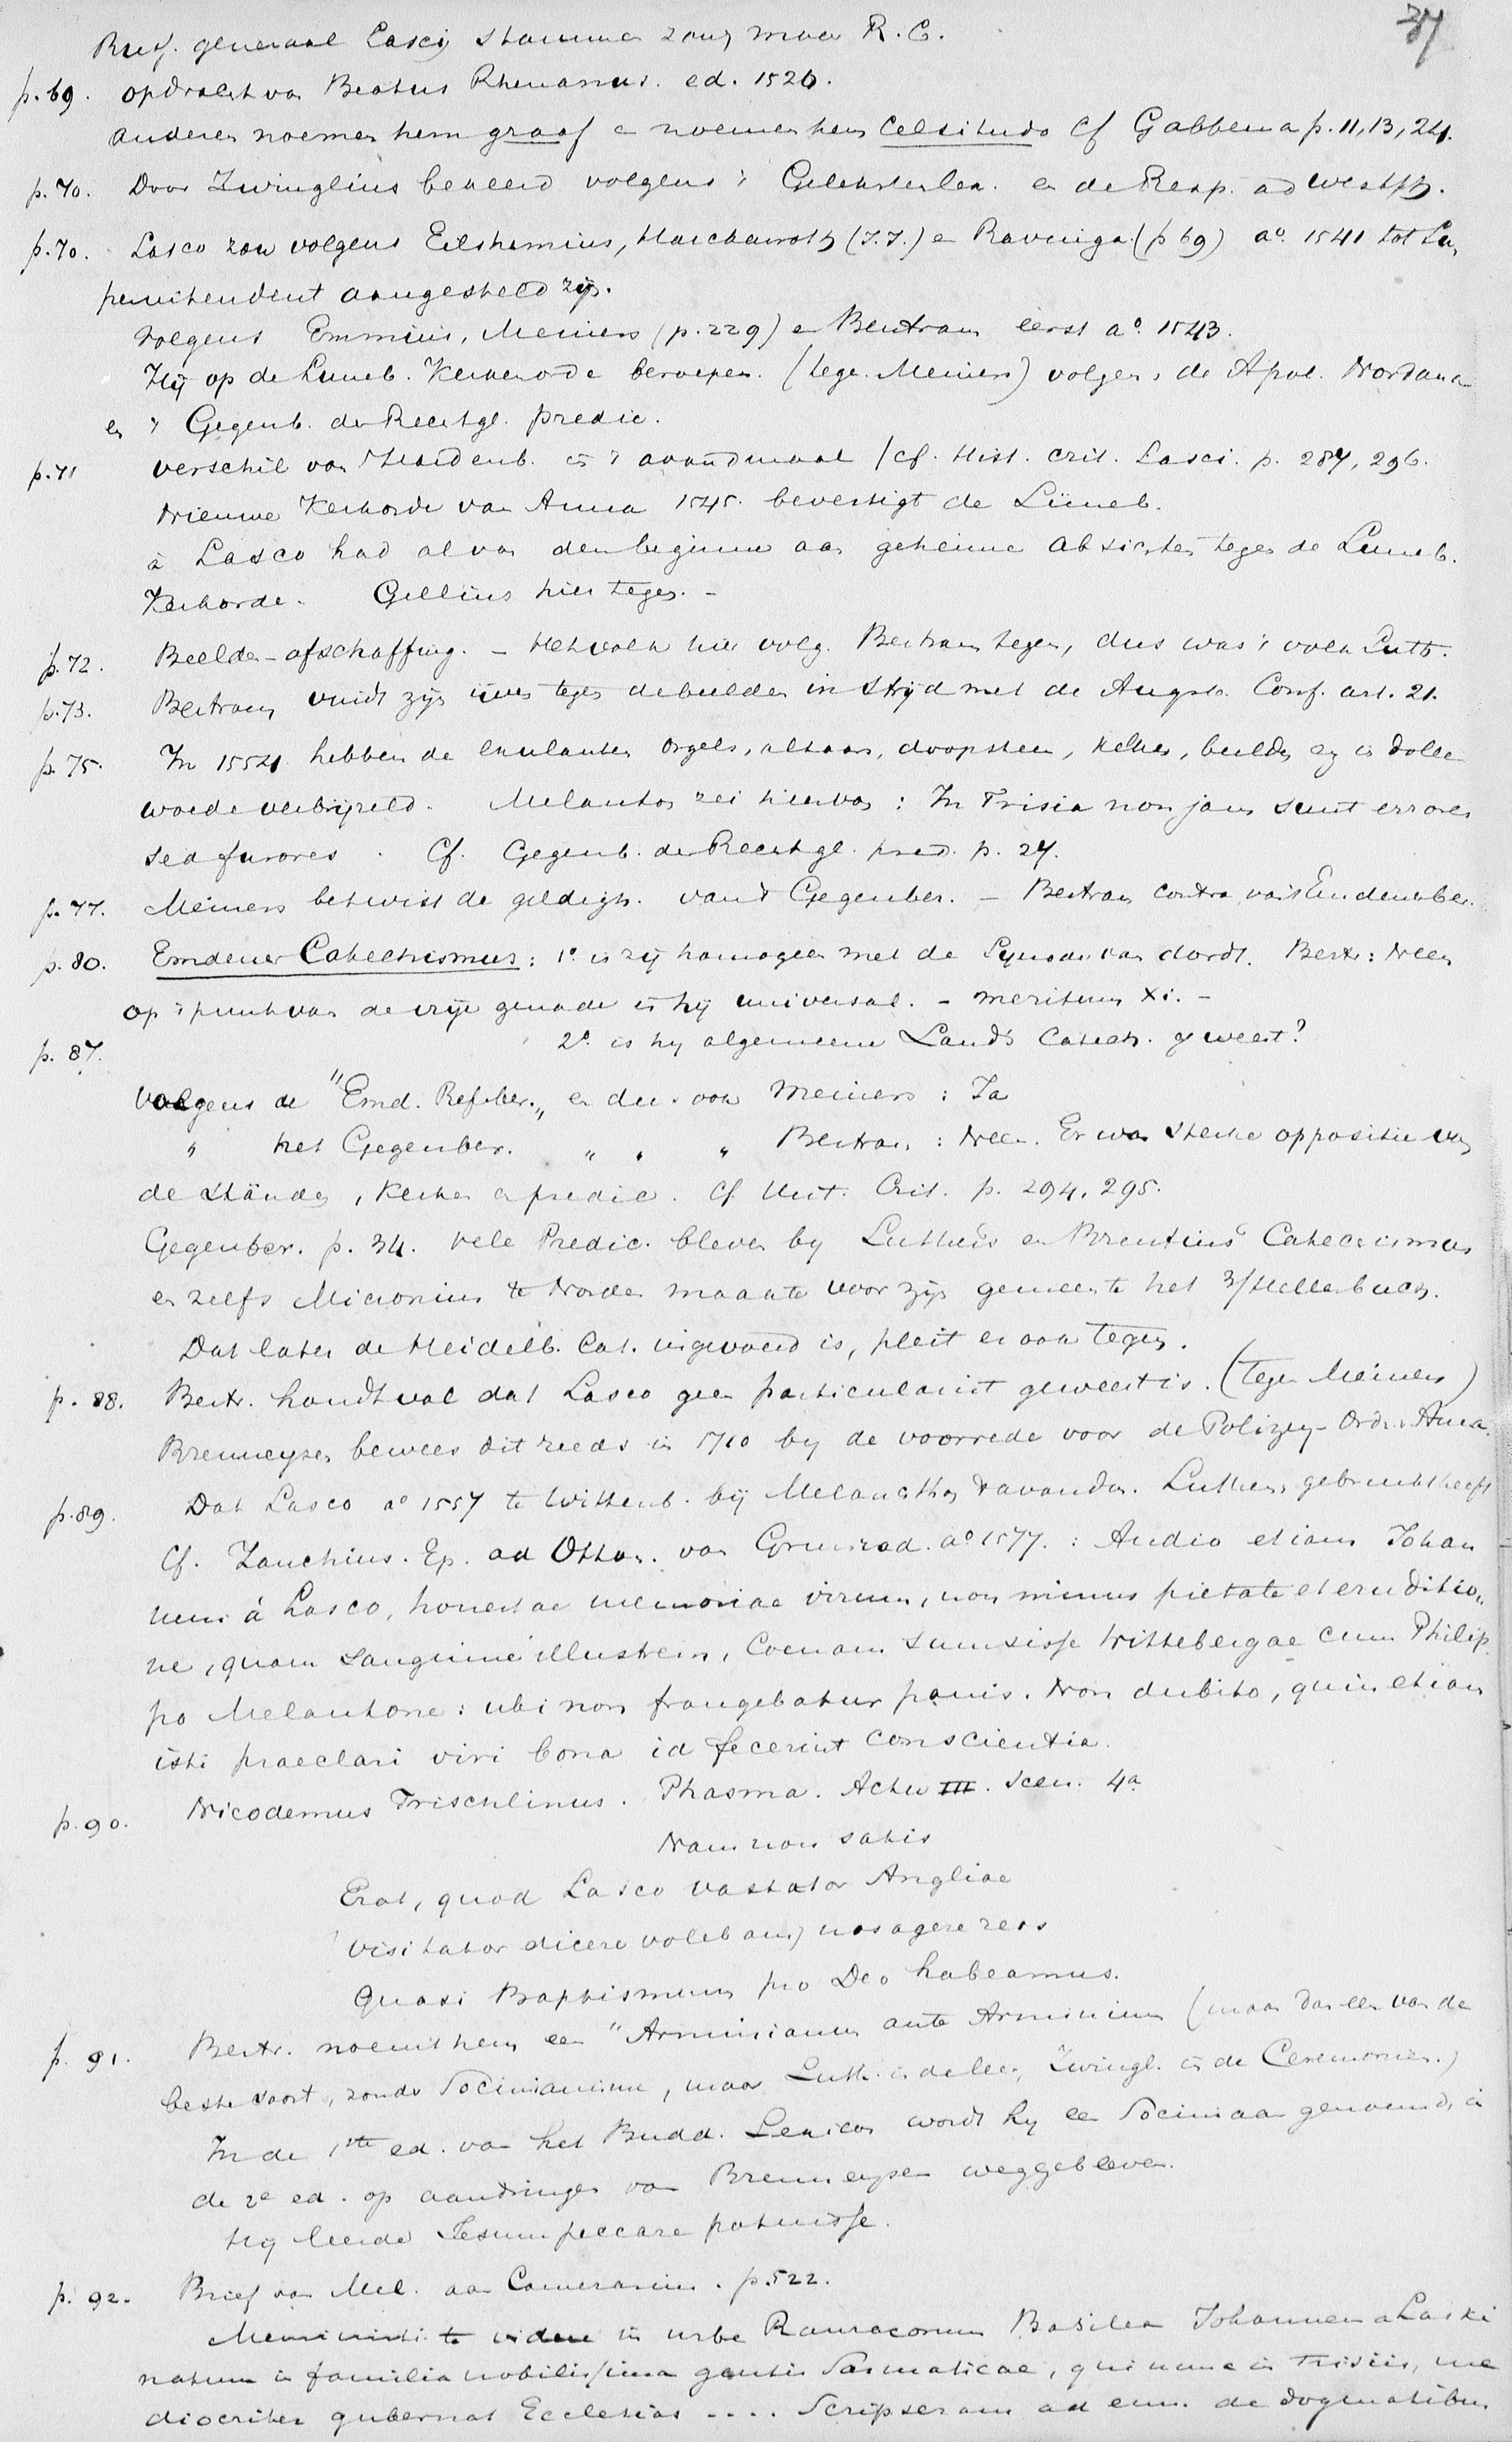 37
Russ. generaal Lascij stamme zong maar R. C.
p. 69. opdracht van Beatus Rhenanus. ed. 1526.
anderen noemen hem graaf en noemen hem Celsitudo Cf Gabbema p. 11, 13, 24.
p. 70. Door Zwinglius bekeerd volgens 't Geleksterlex. en de Resp. ad Westph.
p. 70. Lasco zou volgens Eilshemius, Harckenroth (J. J.) en Ravinga (p 69) ao. 1541 tot Su,
perintendent aangesteld zijn.
volgens Emmius, Meiners (p. 229) en Bertram eerst ao. 1543.
Hij op de Luneb. Kerkenorde beroepen. (tege. Meiners) volgens de Apol. Nordana
en 't Gegenb. der Rechtgl. predic.
p. 71 verschil van Hardenb. in 't avondmaal / cf. Hist. crit. Lasci. p. 287, 296.
Nieuwe Kerkorde van Anna 1545. bevestigt de Lüneb.
à Lasco had al van den beginne aan geheime absichten tegen de Luneb.
Kerkorde. Gellius hier tegen. -
p. 72. Beelden-afschaffing. - Het volk hier volg. Bertram tegen, dus was 't volk Luth.
p. 73. Bertram vindt zijn ijver tegen de beelden in strijd met de Augsb. Conf. art. 21.
p. 75. In 1554 hebben de exulanten orgels, altaar, doopsteen, kelken, beelden enz in dolle
woede verbrijzeld. Melanton zei hiervan: In Frisia non jam sunt errores
sed furores. Cf. Gegenb. der Rechtgl. pred. p. 27.
p. 77. Meiners betwist de geldigh. van 't Gegenber. - Bertram contra van 't Emdenerber.
p. 80. Emdener Catechismus: 1o is zij homogeen met de Synode van Dordt. Bertr: Neen
op 't punt van de vrije genade is hij universal. - meritum Xi. -
p. 87. 2o. is hy algemeene Lands Catech. geweest?
Volgens de "Emd. Ref. ber." en dus ook Meiners: Ja
" het Gegenber. " " " Bertram: Neen. Er was sterke oppositie van
de Stände, Kerken en predic. Cf Hist. Crit. p. 294, 295.
Gegenber. p. 34. Vele Predic. bleven by Luthers en Brentius' Catechismus
en zelfs Micronius te Norden maakte voor zijn gemeente het 3/Hellerbuch.
Dat later de Heidelb. Cat. ingevoerd is, pleit er ook tegen.
p. 88. Bertr. houdt vol dat Lasco geen particularist geweest is. (Tegen Meiners)
Brenneysen bewees dit reeds in 1710 by de voorrede voor de Polizey-Ordn. v Anna.
p. 89. Dat Lasco ao 1557 te Wittenb. bij Melancthon 't avondm. Luthers gebruikt heeft
Cf. Zanchius. Ep. ad Otton. von Grunrad. ao 1577.: Audio etiam Johan
nem á Lasco, honestae memoriae virum, non minus pietate et eruditio,,
ne, quam sanguine illustrem, Coenam sumsisse Wittebergae cum Philip
po Melantone: ubi non frangebatur panis. Non dubito, quin etiam
isti praeclari viri bona id fecerint conscientia.
p. 90. Nicodemus Frischlinus. Phasma. Actu III. Scen. 4a
Nam non satis
Erat, quod Lasco vastator Angliae
Visitator dicere volebam) nos agere reos
Quasi Baptismum pro Deo habeamus.
p. 91. Bertr. noemt hem een "Arminianum ante Arminium (maar dan een van de
beste soort, zonder Socinianisme, maar Luth. in de leer, Zwingl. in de Ceremonien.)
In de 1ste ed. van het Budd. Lexicon wordt hy een Sociniaan genoemd, in
de 2e ed. op aandringen van Brenneysen weggebleven.
Hij leerde Jesum peccare potuisse.
p. 92. Brief van Mel. aan Camerarius. p. 522.
Meministi te vidisse in urbe Rauracorum Basilea Johannem a Laski
natum in familia nobilissima gentis Sarmaticae, qui nunc in Frisiis, me
diocriter gubernat Ecclesias .... Scripseram ad eum de dogmatibus